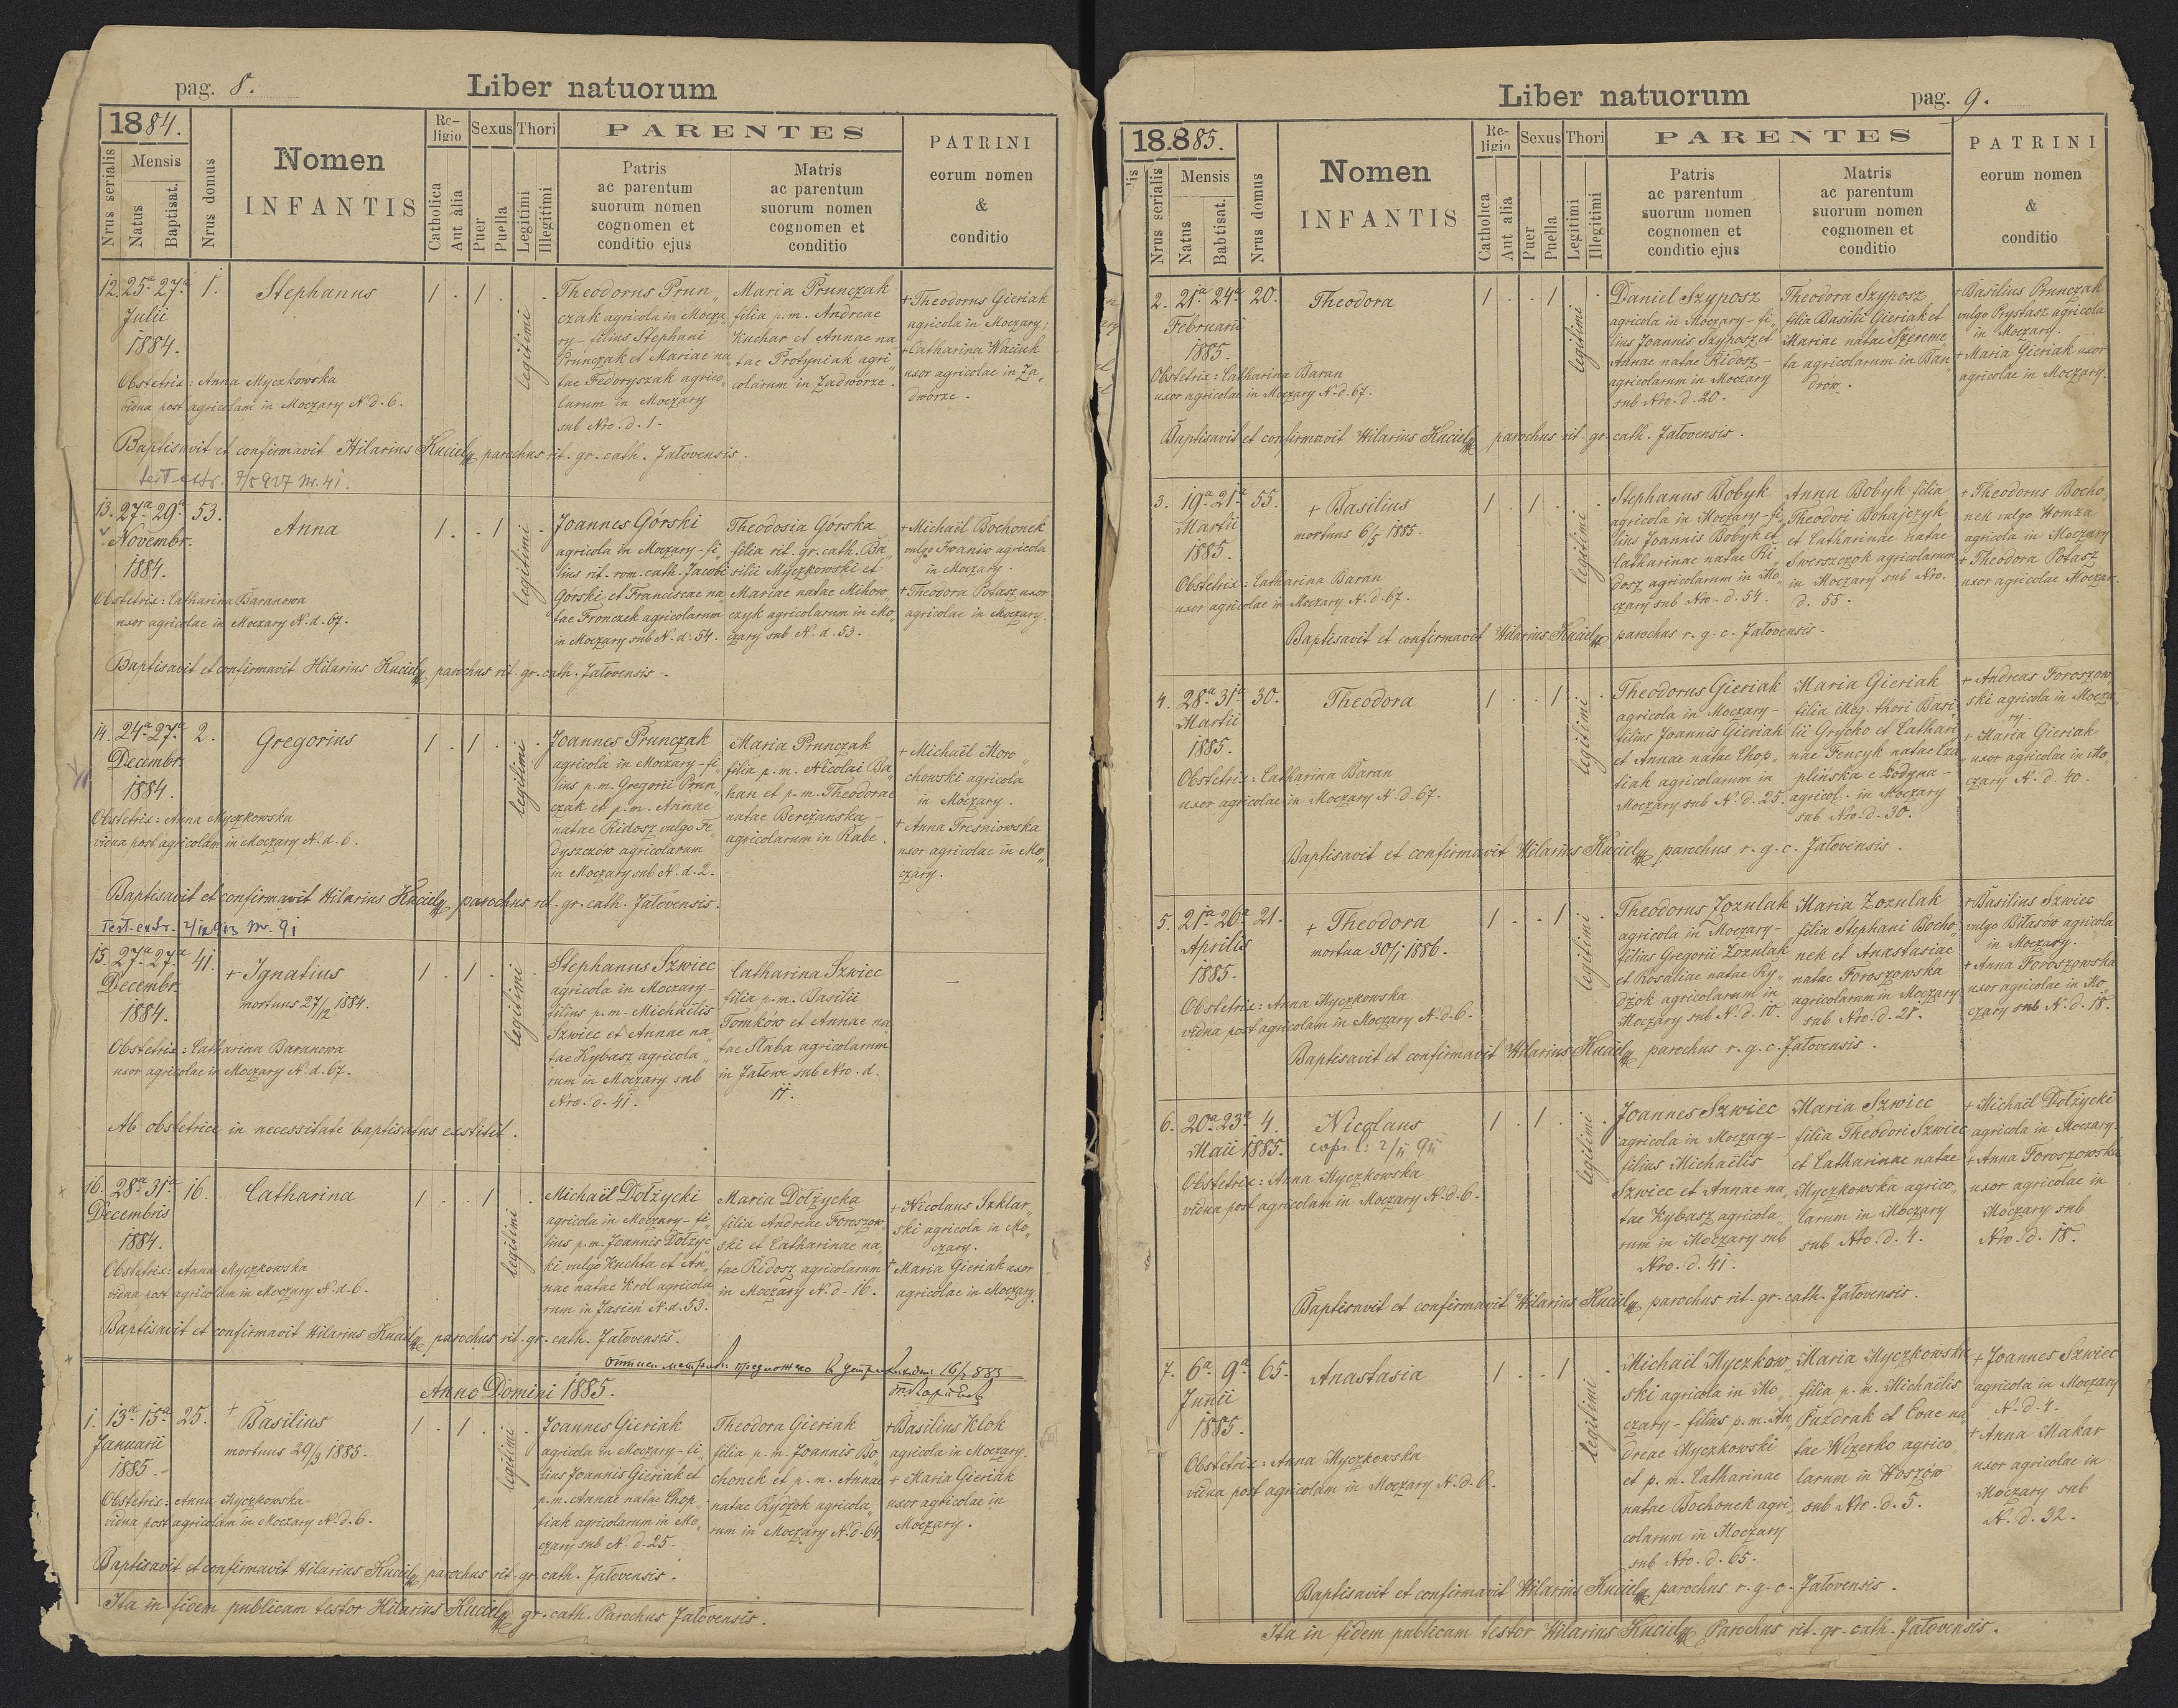 pag. 8.
Liber natuorum
1884.
Nrus serialis
Mensis
Natus
Baptisat.
Nrus domus
Nomen
INFANTIS
Re-
ligio
Catholica
Aut alia
Sexus
Puer
Puella
Thori
Legitimi
Illegitimi
PARENTES
Patris
ac parentum
suorum nomen
cognomen et
conditio ejus
Matris
ac parentum
suorum nomen
cognomen et
conditio
PATRINI
eorum nomen
&
conditio
12. 25a 27a 1.
Julii
1884.
Obstetrix: Anna Myczkowska
vidua post agricolam in Moczary N. d. 6.
Stephanus
1 . 1 . legitimi .
Theodorus Prun„
czak agricola in Mocza„
ry - filius Stephani
Prunczak et Mariae na„
tae Fedoryszak agrico„
larum in Moczary
sub Nro. d. 1.
Maria Prunczak
filia p. m. Andreae
Kuchar et Annae na„
tae Protyniak agri„
colarum in Zadworze.
+ Theodorus Gieriak
agricola in Moczary;
+ Catharina Waciuk
uxor agricolae in Za„
dworze.
Baptisavit et confirmavit Hilarius Kuciely parochus rit. gr. cath. Jałovensis.
test. extr. 7/5 927 Nr. 41.
13. 27a 29a 53.
Novembr.
1884.
Obstetrix: Catharina Baranowa
uxor agricolae in Moczary N. d. 67.
Anna
1 . . 1 legitimi .
Joannes Górski
agricola in Moczary - fi„
lius rit. rom. cath. Jacobi
Górski et Franciscae na„
tae Fronczek agricolarum
in Moczary sub N. d. 54.
Theodosia Górska
filia rit. gr. cath. Ba„
silii Myczkowski et
Mariae natae Mihow„
czyk agricolarum in Mo„
czary sub N. d. 53.
+ Michaël Bochonek
vulgo Iwaniw agricola
in Moczary.
+ Theodora Potasz uxor
agricolae in Moczary.
Baptisavit et confirmavit Hilarius Kuciely parochus rit. gr. cath. Jałovensis.
14. 24a 27a 2.
Decembr.
1884.
Obstetrix: Anna Myczkowska
vidua post agricolam in Moczary N. d. 6.
Gregorius
1 . 1 . legitimi .
Joannes Prunczak
agricola in Moczary - fi„
lius p. m. Gregorii Prun„
czak et p. m. Annae
natae Ridosz vulgo Fe„
dyszczów agricolarum
in Moczary sub N. d. 2.
Maria Prunczak
filia p. m. Nicolai Ba„
han et p. m. Theodorae
natae Bereżańska -
agricolarum in Rabe.
+ Michaël Mow„
chowski agricola
in Moczary.
+ Anna Tresniowska
uxor agricolae in Mo„
czary.
Baptisavit et confirmavit Hilarius Kuciely parochus rit. gr. cath. Jałovensis.
Test. extr. 2/12 913 Nr. 91
15. 27a 27a 41.
Decembr.
1884.
Obstetrix: Catharina Baranowa
uxor agricolae in Moczary N. d. 67.
+ Ignatius
mortuus 27/12 1884.
1 . 1 . legitimi .
Stephanus Szwiec
agricola in Moczary -
filius p. m. Michaëlis
Szwiec et Annae na„
tae Kybasz agricola„
rum in Moczary sub
Nro. d. 41.
Catharina Szwiec
filia p. m. Basilii
Tomków et Annae na„
tae Słaba agricolarum
in Jałowe sub Nro. d.
11.
—
Ab obstetrice in necessitate baptisatus exstitit.
16. 28a 31a 16.
Decembris
1884.
Obstetrix: Anna Myczkowska
vidua post agricolam in Moczary N. d. 6.
Catharina
1 . . 1 legitimi .
Michaël Dołżycki
agricola in Moczary - fi„
lius p. m. Joannis Dołżyc„
ki vulgo Kuchta et An„
nae natae Król agricola„
rum in Jasień N. d. 53.
Maria Dołżycka
filia Andreae Foroszow„
ski et Catharinae na„
tae Ridosz agricolarum
in Moczary N. d. 16.
+ Nicolaus Szklar„
ski agricola in Mo„
czary.
+ Maria Gieriak uxor
agricolae in Moczary.
Baptisavit et confirmavit Hilarius Kuciely parochus rit. gr. cath. Jałovensis.
16/1 885
Anno Domini 1885.
1. 13a 15a 25.
Januarii
1885.
Obstetrix: Anna Myczkowska
vidua post agricolam in Moczary N. d. 6.
+ Basilius
mortuus 29/3 1885.
1 . 1 . legitimi .
Joannes Gieriak
agricola in Moczary - fi„
lius Joannis Gieriak et
p. m. Annae natae Chop„
tiak agricolarum in Mo„
czary sub N. d. 25.
Theodora Gieriak
filia p. m. Joannis Bo„
chonek et p. m. Annae
natae Rydżok agricola„
rum in Moczary N. d. 64.
+ Basilius Klok
agricola in Moczary.
+ Maria Gieriak
uxor agricolae in
Moczary.
Baptisavit et confirmavit Hilarius Kuciely parochus rit. gr. cath. Jałovensis.
Ita in fidem publicam testor Hilarius Kuciely gr. cath. Parochus Jałovensis.
Liber natuorum
pag. 9.
18.885.
Nrus serialis
Mensis
Natus
Babtisat.
Nrus domus
Nomen
INFANTIS
Re-
ligio
Catholica
Aut alia
Sexus
Puer
Puella
Thori
Legitimi
Illegitimi
PARENTES
Patris
ac parentum
suorum nomen
cognomen et
conditio ejus
Matris
ac parentum
suorum nomen
cognomen et
conditio
PATRINI
eorum nomen
&
conditio
2. 21a 24a 20.
Februarii
1885.
Obstetrix: Catharina Baran
uxor agricolae in Moczary N. d. 67.
Theodora
1 . . 1 legitimi .
Daniel Szyposz
agricola in Moczary - fi„
lius Joannis Szyposz et
Annae natae Ridosz -
agricolarum in Moczary
sub Nro. d. 20.
Theodora Szyposz
filia Basilii Gieriak et
Mariae natae Szereme„
ta agricolarum in Ban„
drów.
+ Basilius Prunczak
vulgo Prystasz agricola
in Moczary.
+ Maria Gieriak uxor
agricolae in Moczary.
Baptisavit et confirmavit Hilarius Kuciely parochus rit. gr. cath. Jałovensis.
3. 19a 21a 55.
Martii
1885.
Obstetrix: Catharina Baran
uxor agricolae in Moczary N. d. 67.
+ Basilius
mortuus 6/5 1885.
1 . 1 . legitimi .
Stephanus Bobyk
agricola in Moczary - fi„
lius Joannis Bobyk et
Catharinae natae Ri„
dosz agricolarum in Mo„
czary sub Nro. d. 54.
Anna Bobyk filia
Theodori Bohajczyk
et Catharinae natae
Swerszczok agricolarum
in Moczary sub Nro.
d. 55.
+ Theodorus Bocho„
nek vulgo Homza
agricola in Moczary
+ Theodora Potasz
uxor agricolae Moczar.
Baptisavit et confirmavit Hilarius Kuciely parochus r. g. c. Jałovensis.
4. 28a 31a 30.
Martii
1885.
Obstetrix: Catharina Baran
uxor agricolae in Moczary N. d. 67.
Theodora
1 . . 1 legitimi .
Theodorus Gieriak
agricola in Moczary -
filius Joannis Gieriak
et Annae natae Chop„
tiak agricolarum in
Moczary sub N. d. 25.
Maria Gieriak
filia illeg. thori Basi„
lii Gryćko et Cathari„
nae Fencyk natae Cza„
plińska e Łodyna -
agricol. in Moczary
sub Nro. d. 30.
+ Andreas Foroszow„
ski agricola in Mocza„
ry.
+ Maria Gieriak
uxor agricolae in Mo„
czary N. d. 40.
Baptisavit et confirmavit Hilarius Kuciely parochus r. g. c. Jałovensis.
5. 21a 26a 21.
Aprilis
1885.
Obstetrix: Anna Myczkowska
vidua post agricolam in Moczary N. d. 6.
+ Theodora
mortua 30/1 1886.
1 . . 1 legitimi .
Theodorus Zozulak
agricola in Moczary -
filius Gregorii Zozulak
et Rosaliae natae Ry„
dżok agricolarum in
Moczary sub N. d. 10.
Maria Zozulak
filia Stephani Bocho„
nek et Anastasiae
natae Foroszowska
agricolarum in Moczary
sub Nro. d. 21.
+ Basilius Szwiec
vulgo Biłasów agricola
in Moczary.
+ Anna Foroszowska
uxor agricolae in Mo„
czary sub N. d. 18.
Baptisavit et confirmavit Hilarius Kuciely parochus r. g. c. Jałovensis.
6. 20a 23a 4.
Maii 1885.
Obstetrix: Anna Myczkowska
vidua post agricolam in Moczary N. d. 6.
Nicolaus
1 . 1 . legitimi .
Joannes Szwiec
agricola in Moczary -
filius Michaëlis
Szwiec et Annae na„
tae Kybasz agricola„
rum in Moczary sub
Nro. d. 41.
Maria Szwiec
filia Theodori Szwiec
et Catharinae natae
Myczkowska agrico„
larum in Moczary
sub Nro. d. 4.
+ Michaël Dołżycki
agricola in Moczary.
+ Anna Foroszowska
uxor agricolae in
Moczary sub
Nro. d. 18.
Baptisavit et confirmavit Hilarius Kuciely parochus rit. gr. cath. Jałovensis.
7. 6a 9a 65.
Junii
1885.
Obstetrix: Anna Myczkowska
vidua post agricolam in Moczary N. d. 6.
Anastasia
1 . . 1 legitimi .
Michaël Myczkow„
ski agricola in Mo„
czary - filius p. m. An„
dreae Myczkowski
et p. m. Catharinae
natae Bochonek agri„
colarum in Moczary
sub Nro. d. 65.
Maria Myczkowska
filia p. m. Michaëlis
Puzdrak et Evae na„
tae Wizerko agrico„
larum in Hoszów
sub Nro. d. 5.
+ Joannes Szwiec
agricola in Moczary
N. d. 4.
+ Anna Makar
uxor agricolae in
Moczary sub
N. d. 32.
Baptisavit et confirmavit Hilarius Kuciely parochus r. g. c. Jałovensis.
Ita in fidem publicam testor Hilarius Kuciely Parochus rit. gr. cath. Jałovensis.